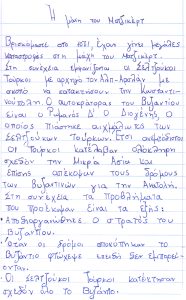 Η μάχη του Ματζικέρτ
Βρισκόμαστε στο 1071, έχουν γίνει μεγάλες
καταστροφές στη μάχη του Ματζικέρτ.
Στη συνέχεια εμφανίζονται οι Σελτζούκοι
Τούρκοι με αρχηγό τον Αλπ-Αρσλάν με
σκοπό να κατακτήσουν την Κωνσταντι-
νούπολη. Ο αυτοκράτορας του Βυζαντίου
είναι ο Ρωμανός Δ' ο Διογένης, ο
οποίος πιάστηκε αιχμάλωτος των
Σελτζούκων Τούρκων. Έτσι
Οι Τούρκοι κατέλαβαν ολόκληρη
σχεδόν την Μικρά Ασία και
επίσης απέκοψαν τους δρόμους
των Βυζαντινών για την Ανατολή.
Στη συνέχεια τα προβλήματα
που προέκυψαν είναι τα εξής:
• Αποδιοργανώθηκε ο στρατός του
Βυζαντίου.
• Όταν οι δρόμοι αποκόπηκαν το
Βυζάντιο φτώχυνε επειδή δεν εμπορεύ-
ονταν.
• Οι Σελτζούκοι Τούρκοι κατέκτησαν
σχεδόν όλο το Βυζάντιο.